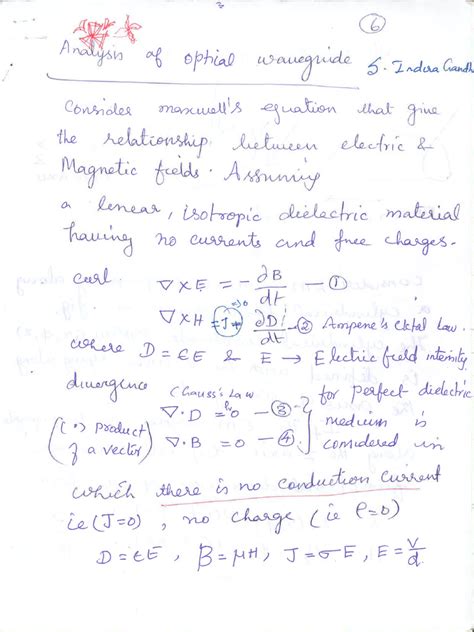 6
Analysis of optial waveguide S. Indira Gandhi
Consider maxwell's equation that give
the relationship between electric &
Magnetic fields. Assuming
a linear, isotropic dielectric material
having no currents and free charges.
curl ∇ × E = -∂B/dt — ①
∇ × H = J + ∂D/dt — ② Ampere's Cktal Law.
where D = ϵE & E → Electric field intensity
divergence (Gauss's Law for perfect dielectric
∇ · D = 0 — ③ medium is
(•) product ∇ · B = 0 — ④ considered in
of a vector
which there is no conduction current
ie (J=0), no charge (ie ρ=0)
D = ϵE, B = μH, J = σE, E = V/d.